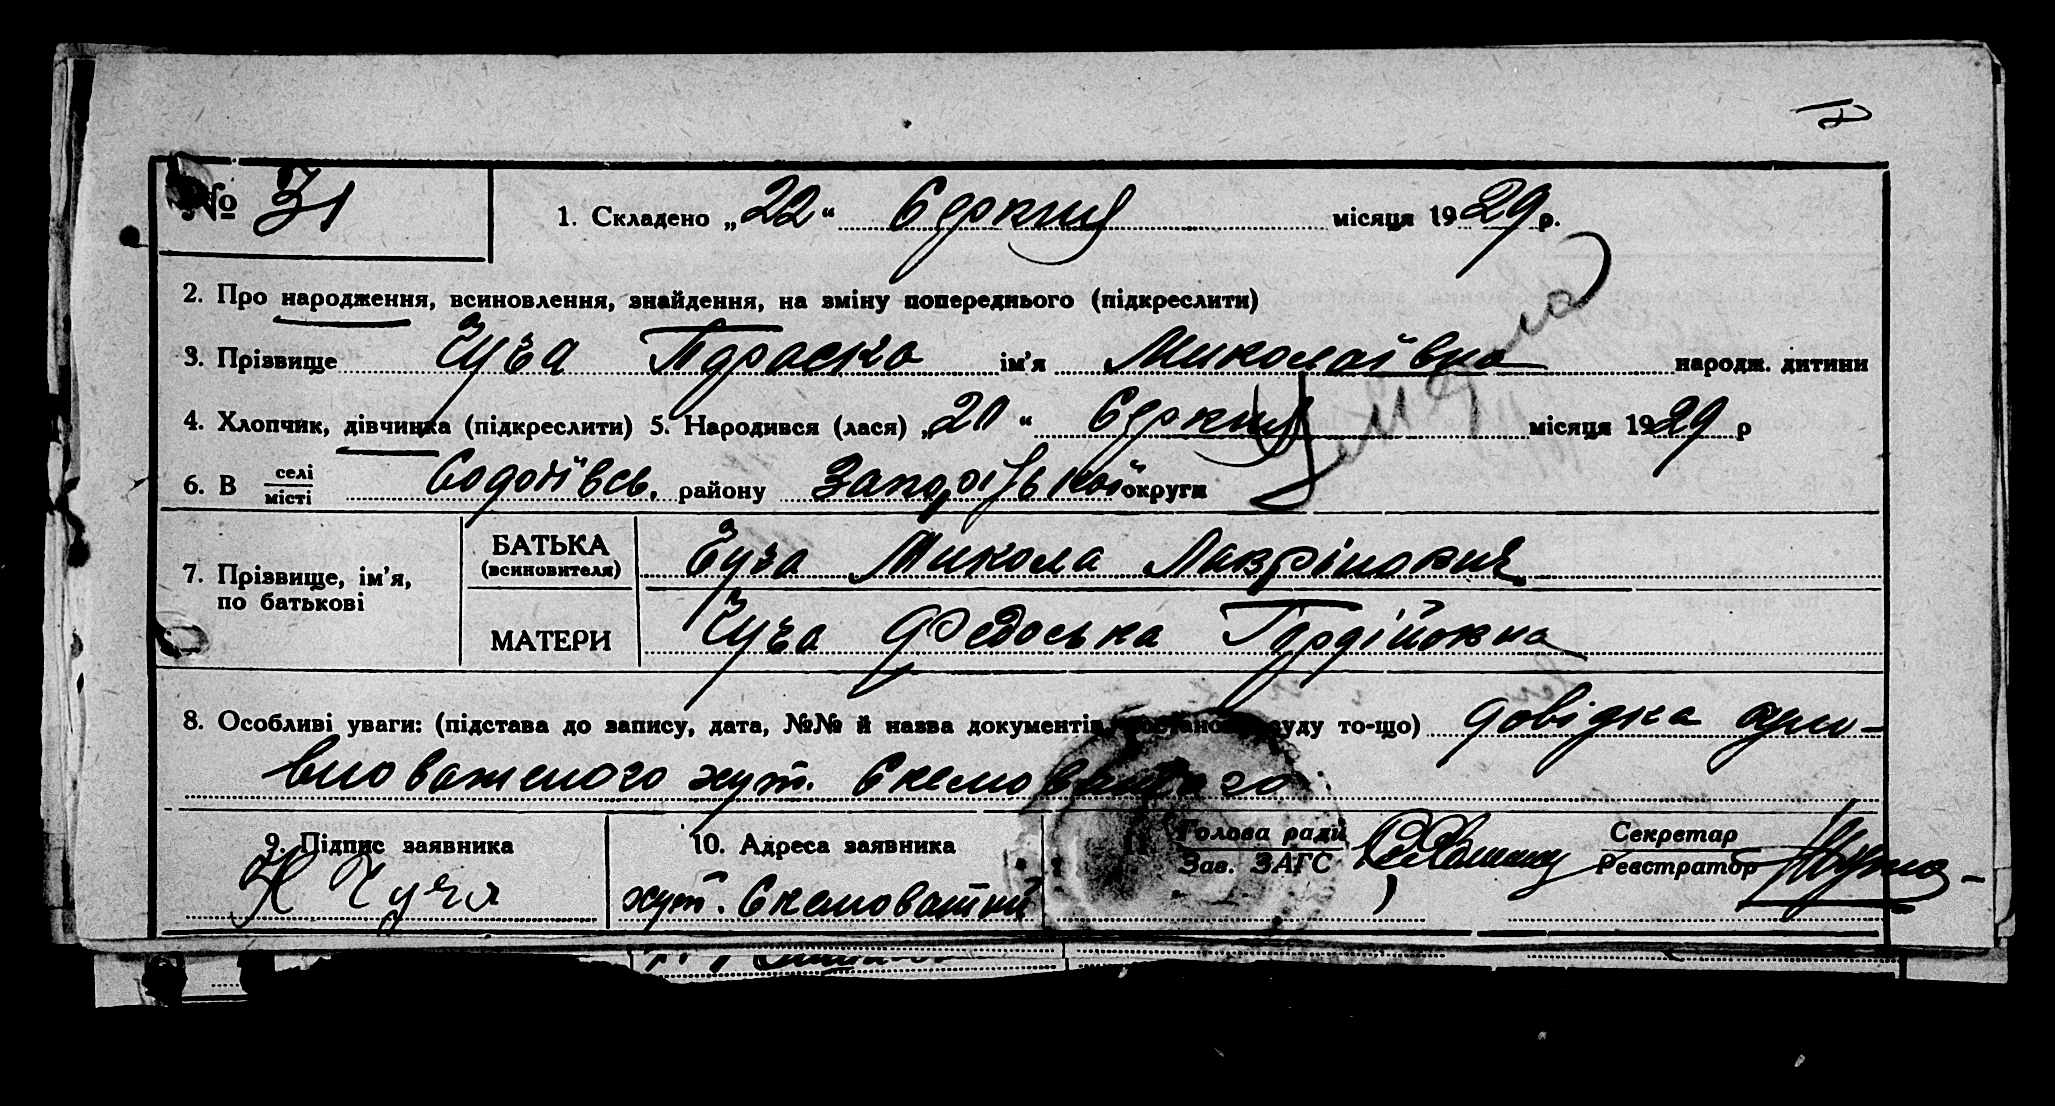 № 31
1. Складено „22“ Серпня місяця 1929 р.
2. Про народження, всиновлення, знайдення, на зміну попереднього (підкреслити)
3. Прізвище Чуча Параска ім'я Миколаївна народж. дитини
4. Хлопчик, дівчинка (підкреслити) 5. Народився (лася) „20“ Серпня місяця 1929 р
6. В селі місті району округи
7. Прізвище, ім'я, по батькові
БАТЬКА (всиновителя) Чуча Микола Лаврінович
МАТЕРИ Чуча Федоська Гордійовна
8. Особливі уваги: (підстава до запису, дата, №№ й назва документів, постанов суду то-що) довідка упо-
вноваженого хут. Скеловатого
9. Підпис заявника
10. Адреса заявника
Голова ради
Зав. ЗАГС
Секретар
Реєстратор
Н Чуча
хут. Скеловатий